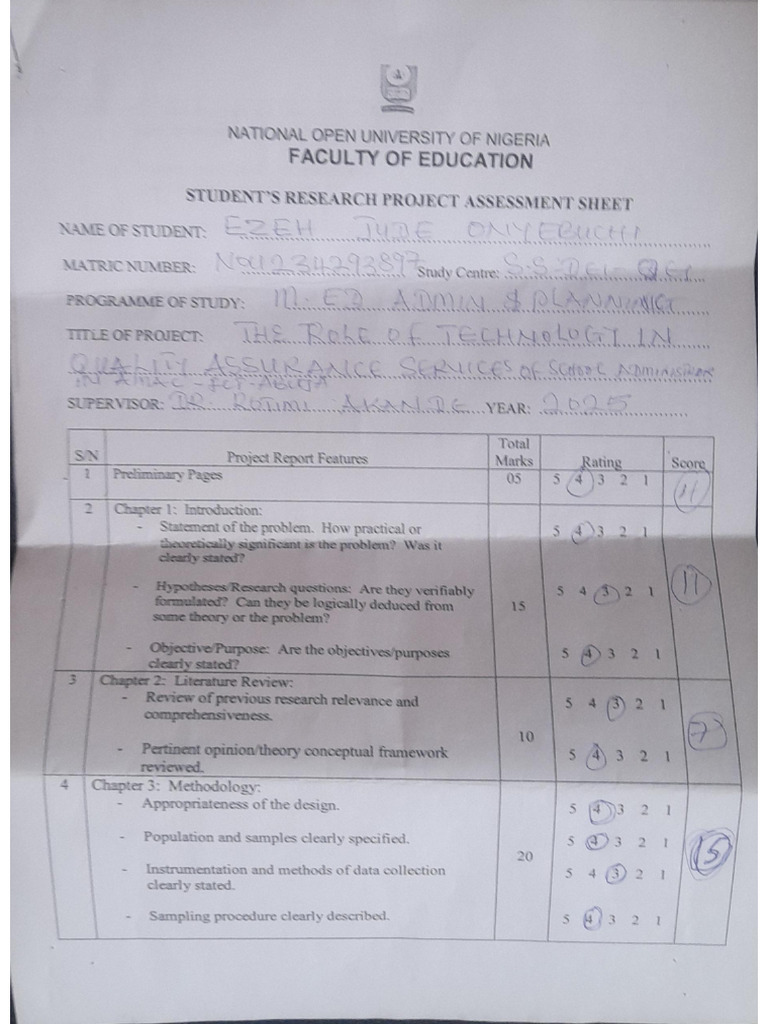 NATIONAL OPEN UNIVERSITY OF NIGERIA
FACULTY OF EDUCATION
STUDENT'S RESEARCH PROJECT ASSESSMENT SHEET
NAME OF STUDENT: EZEH JUDE ONYEBUCHI
MATRIC NUMBER: NOU234293897 Study Centre: S.S.
PROGRAMME OF STUDY: M.ED ADMIN & PLANNING
TITLE OF PROJECT: THE ROLE OF TECHNOLOGY IN
QUALITY ASSURANCE SERVICES OF SCHOOL
IN AMAC - FCT-ABUJA
SUPERVISOR: DR. ROTIMI AKANDE YEAR: 2025
S/N Project Report Features Total Marks Rating Score
1 Preliminary Pages 05 5 4 3 2 1
2 Chapter 1: Introduction:
- Statement of the problem. How practical or 5 4 3 2 1
theoretically significant is the problem? Was it
clearly stated?
- Hypotheses/Research questions: Are they verifiably 5 4 3 2 1 11
formulated? Can they be logically deduced from 15
some theory or the problem?
- Objective/Purpose: Are the objectives/purposes 5 4 3 2 1
clearly stated?
3 Chapter 2: Literature Review:
- Review of previous research relevance and 5 4 3 2 1
comprehensiveness.
10 7
- Pertinent opinion/theory conceptual framework 5 4 3 2 1
reviewed.
4 Chapter 3: Methodology:
- Appropriateness of the design. 5 4 3 2 1
- Population and samples clearly specified. 5 4 3 2 1
20 15
- Instrumentation and methods of data collection 5 4 3 2 1
clearly stated.
- Sampling procedure clearly described. 5 4 3 2 1